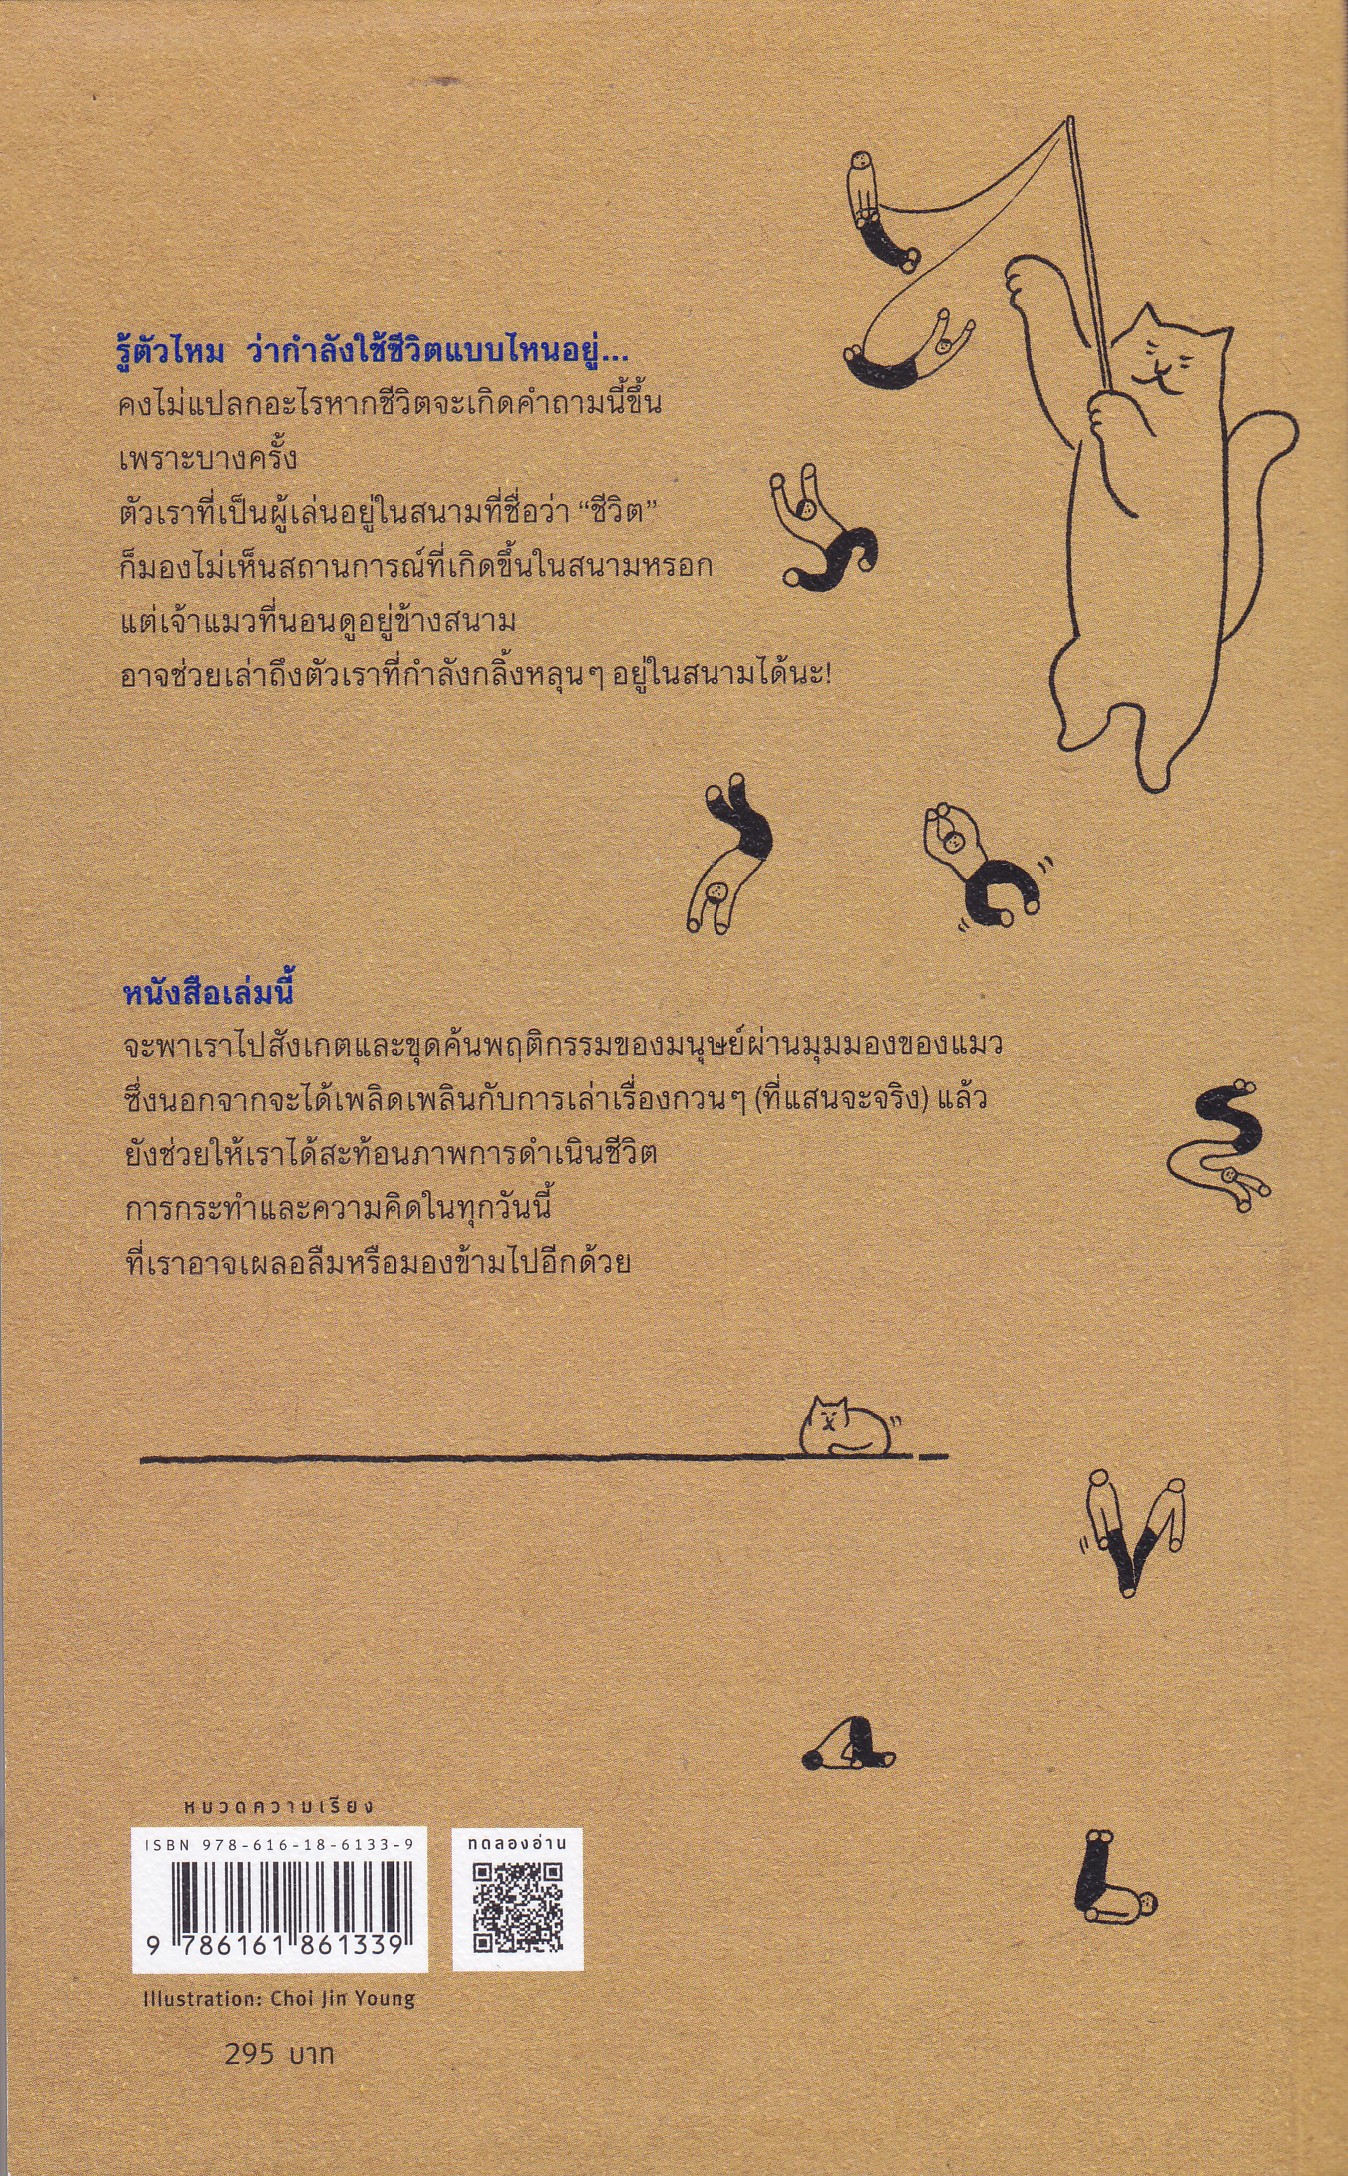 รู้ตัวไหม ว่ากำลังใช้ชีวิตแบบไหนอยู่...
คงไม่แปลกอะไรหากชีวิตจะเกิดคำถามนี้ขึ้น
เพราะบางครั้ง
ตัวเราที่เป็นผู้เล่นอยู่ในสนามที่ชื่อว่า “ชีวิต”
ก็มองไม่เห็นสถานการณ์ที่เกิดขึ้นในสนามหรอก
แต่เจ้าแมวที่นอนดูอยู่ข้างสนาม
อาจช่วยเล่าถึงตัวเราที่กำลังกลิ้งหลุนๆ อยู่ในสนามได้นะ!
หนังสือเล่มนี้
จะพาเราไปสังเกตและขุดค้นพฤติกรรมของมนุษย์ผ่านมุมมองของแมว
ซึ่งนอกจากจะได้เพลิดเพลินกับการเล่าเรื่องกวนๆ (ที่แสนจะจริง) แล้ว
ยังช่วยให้เราได้สะท้อนภาพการดำเนินชีวิต
การกระทำและความคิดในทุกวันนี้
ที่เราอาจเผลอลืมหรือมองข้ามไปอีกด้วย
หมวดความเรียง
ISBN 978-616-18-6133-9
9 786161 861339
ทดลองอ่าน
Illustration: Choi Jin Young
295 บาท